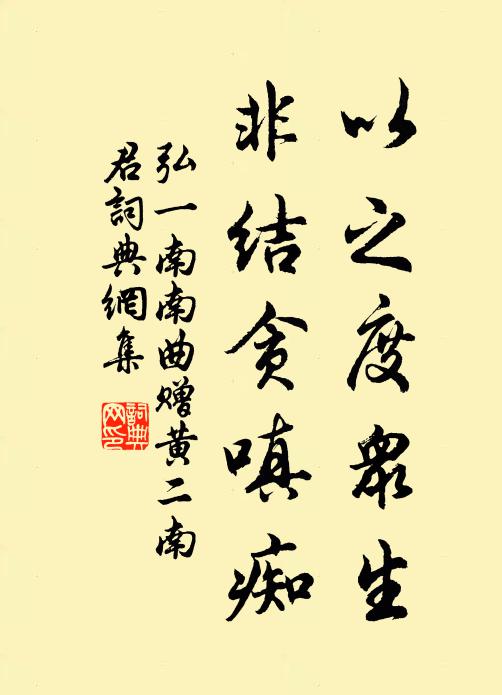 以之度衆生
非结贪嗔痴
弘一南南曲赠黄二南
君詞典網集
詞典
网印